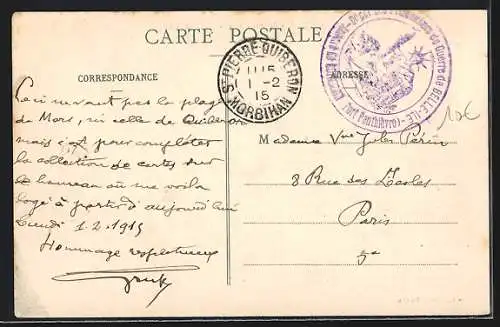 CARTE POSTALE
CORRESPONDANCE
ADRESSE
ST PIERRE-QUIBERON
1-2
15
MORBIHAN
Prisonniers de Guerre de BELLE-ILE
Fort Penthièvre
10€
Ceci n'est pas la plage
de Mars, ni celle de Quiberon
mais c'est pour compléter
la collection de cartes sur
le hameau où me voilà
logé à partir d'aujourd'hui
Lundi 1.2.1915
Hommage respectueux
Madame Vve Jules Périn
8 Rue des Ecoles
Paris
5e